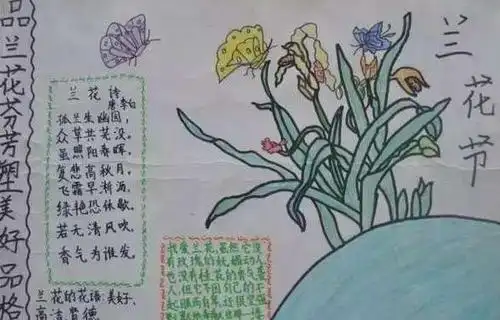 品兰花芬芳塑美好品格
兰花诗
唐李白
孤兰生幽园，
众草共芜没。
虽照阳春晖，
复悲高秋月。
飞霜早淅沥，
绿艳恐休歇。
若无清风吹，
香气为谁发。
兰花的花语：美好、
高洁、贤德
兰花节
我爱兰花，虽然它没
有玫瑰的妖媚动人
也没有桂花的香气袭
人，但它不因自己的不
起眼而自卑，还很坚强